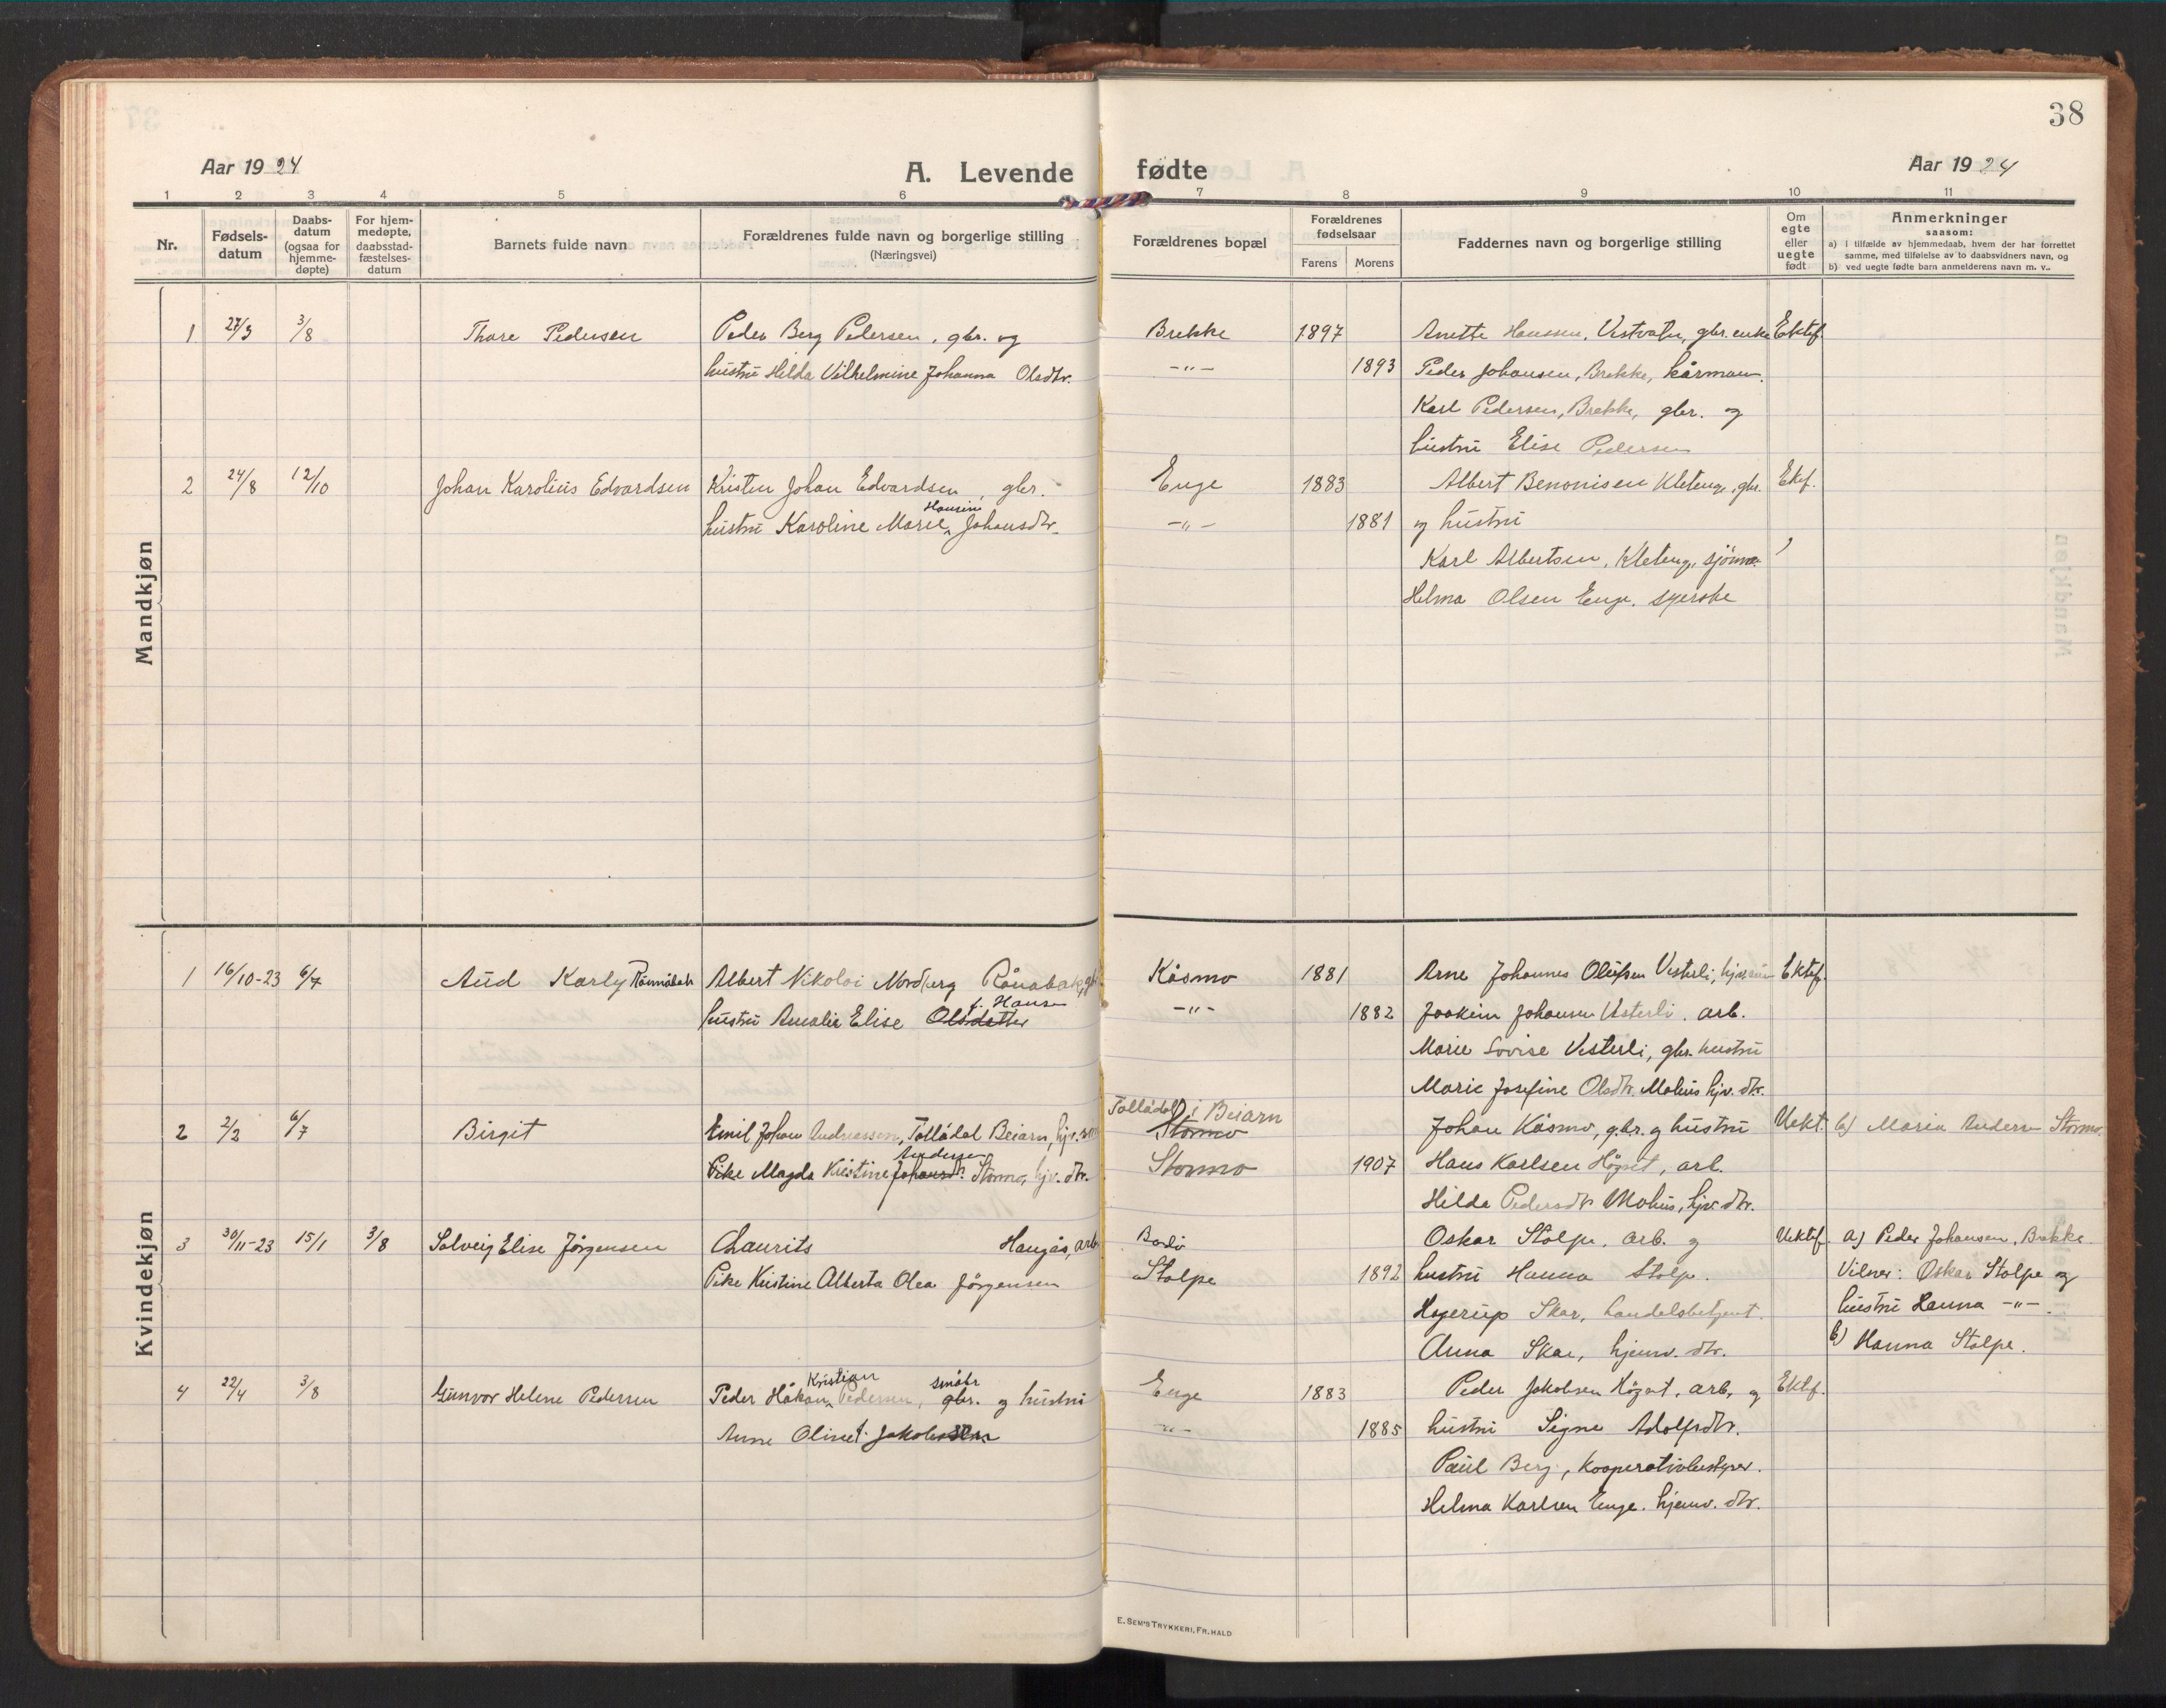 38
Aar 1924
A. Levende fødte
Aar 1924
1 2 3 4 5 6 7 8 9 10 11
Nr.
Fødsels-
datum
Daabs-
datum
(ogsaa for
hjemme-
døpte)
For hjem-
medøpte,
daabsstad-
fæstelses-
datum
Barnets fulde navn
Forældrenes fulde navn og borgerlige stilling
(Næringsvei)
Forældrenes bopæl
Forældrenes
fødselsaar
Farens Morens
Faddernes navn og borgerlige stilling
Om
egte
eller
uegte
født
Anmerkninger
saasom:
a) i tilfælde av hjemmedaab, hvem der har forrettet
samme, med tilføielse av to daabsvidners navn, og
b) ved uegte fødte barn anmelderens navn m. v.
Mandkjøn
1 27/3 3/8 Thore Pedersen Peder Berg Pedersen, gbr. og Brekke 1897 Anette Hanssen, Vestvatn, gbr. enke Ektef.
hustru Hilda Vilhelmine Johanna Olsdtr. -"- 1893 Peder Johansen, Brekke, kårmann.
Karl Pedersen, Brekke, gbr. og
hustru Elise Pedersen
2 24/8 12/10 Johan Karolius Edvardsen Kristen Johan Edvardsen, gbr. Enge 1883 Albert Benonisen Kleteng, gbr. Ektf.
Hansine
hustru Karoline Marie Johansdtr. -"- 1881 og hustru
Karl Albertsen, Kleteng, sjöm.
Helma Olsen Enge. syerske
Kvindekjøn
1 16/10-23 6/7 Aud Karly Rånabakk Albert Nikolai Nordberg Rånabakk, gbr. Kåsmo 1881 Arne Johannes Olufsen Vesterli, hjv. sön Ektef.
f. Hansen
hustru Amalie Elise Olsdatter -"- 1882 Joakim Johansen Vesterli. arb.
Marie Lovise Vesterli, gbr. hustru
Marie Josefine Olsdtr. Mohus hjv. dtr.
Tollådal i Beiarn
2 2/2 6/7 Birgit Emil Johan Andreassen, Tollådal Beiarn, hjv. sön Stormo Johan Kåsmo, gbr. og hustru Uekt. b) Maria Andersen Stormo.
Andersen
Pike Magda Kristine Johansdtr. Stormo, hjv. dtr. Stormo 1907 Hans Karlsen Högset, arb.
Hilda Pedersdtr Mohus, hjv. dtr.
3 30/11-23 15/1 3/8 Solveig Elise Jörgensen Laurits Haugås, arb. Bodö Oskar Stolpe, arb. og Uektef. a) Peder Johansen, Brekke
Pike Kristine Alberta Olea Jörgensen Stolpe 1892 hustru Hanna Stolpe. Vitner: Oskar Stolpe og
Hagerup Skar, handelsbetjent. hustru Hanna -"-.
Anna Skar, hjemv. dtr. b) Hanna Stolpe.
Kristian småbr
4 22/4 3/8 Gunvor Helene Pedersen Peder Håkon Pedersen, gbr. og hustru Enge 1883 Peder Jakobsen Högset, arb. og Ektf.
Anne Oline f. Jakobsen -"- 1885 hustru Signe Adolfsdtr.
Paul Berg, Kooperativbestyrer.
Helma Karlsen Enge. hjemv. dtr.
E. SEM'S TRYKKERI, FR.HALD